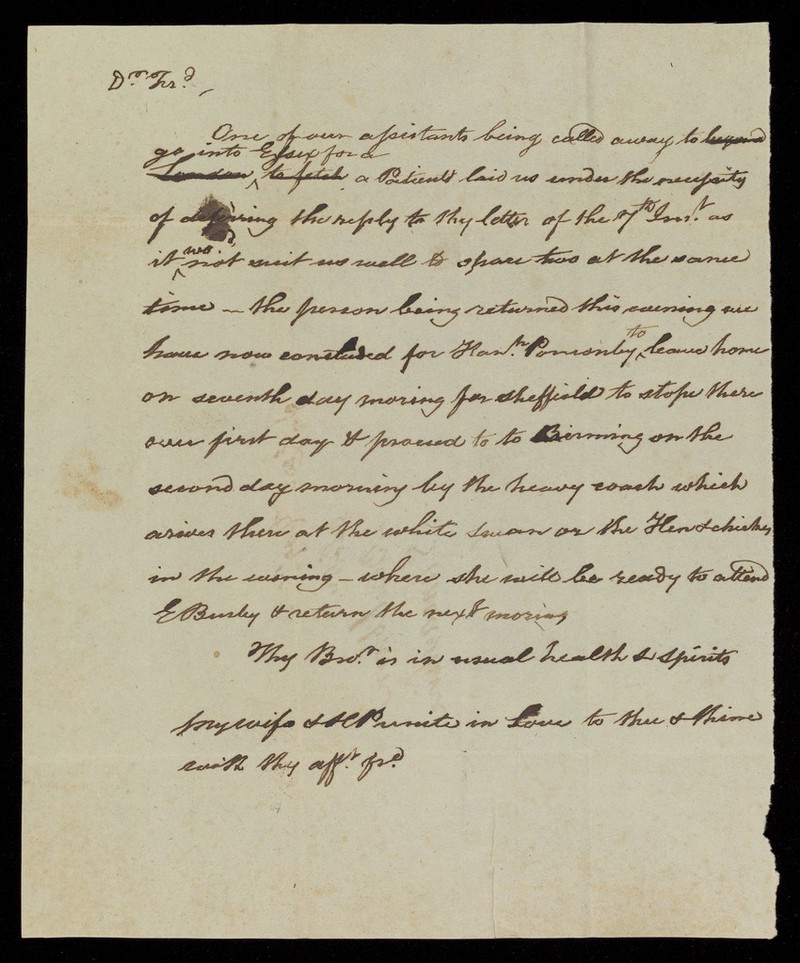 Dr. Frd,
One of our assistants being called away to beyond
go into Essex for a
London, to fetch a Patient laid us under the necessity
of deferring the reply to thy letter of the 7th Inst. as
wod.
it not suit us well to spare two at the same
time – the person being returned this evening we
to
have now concluded for Hanh. Ponsonby leave home
on seventh day moring for Sheffield to stope there
over first day & proceed to to Birming on the
second day morning by the heavy coach which
arives there at the white Swan or the Hen & chickns
in the evening – where she will be ready to attend
E Busby & return the next moring
Thy Bror. is in usual health & spirits
My wife & HP unite in Love to thee & thine
with thy afft. frd